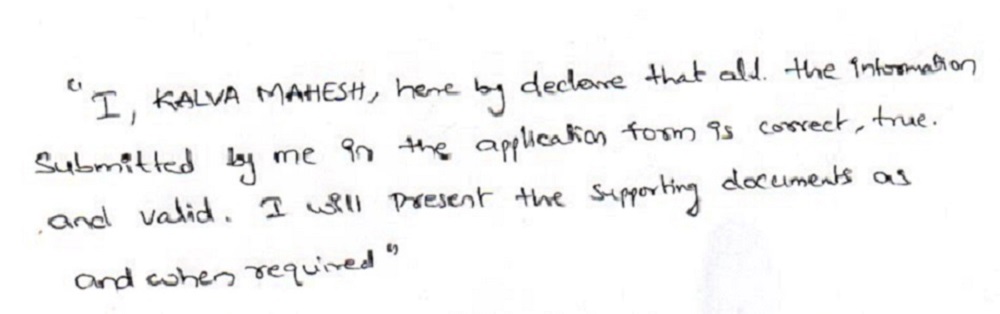 "I, KALVA MAHESH, here by declare that all. the information
Submitted by me in the application form is correct, true.
and valid. I will present the supporting documents as
and when required"